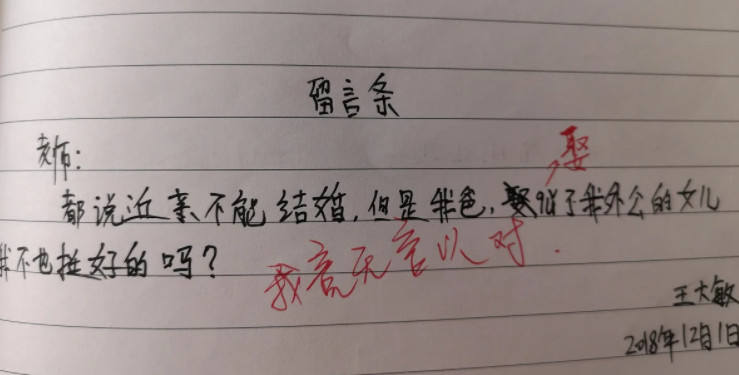 留言条
老师：
娶
都说近亲不能结婚，但是我爸，娶了我外公的女儿
我不也挺好的吗？
我竟无言以对．
王大敏
2018年12月1日